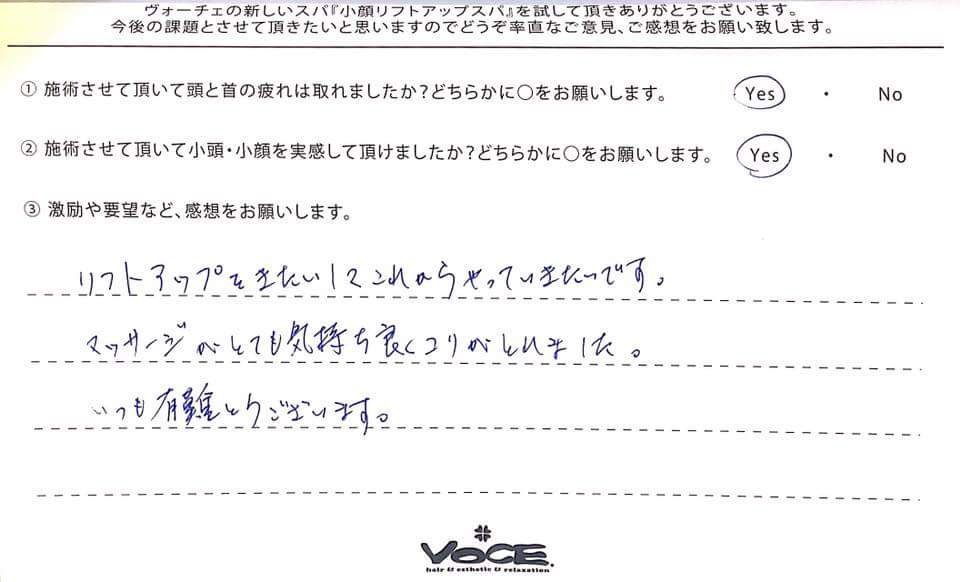 ヴォーチェの新しいスパ『小顔リフトアップスパ』を試して頂きありがとうございます。
今後の課題とさせて頂きたいと思いますのでどうぞ率直なご意見、ご感想をお願い致します。
① 施術させて頂いて頭と首の疲れは取れましたか?どちらかに〇をお願いします。 Yes ・ No
② 施術させて頂いて小頭・小顔を実感して頂けましたか?どちらかに〇をお願いします。 Yes ・ No
③ 激励や要望など、感想をお願いします。
リフトアップをきたいしてこれからやっていきたいです。
マッサージがとても気持ち良くコリがとれました。
いつも有難とうございます。
VOCE.
hair & esthetic & relaxation